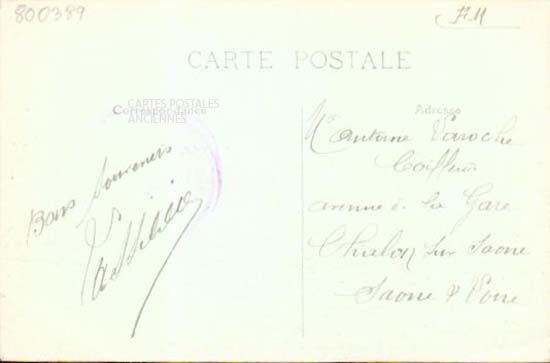 800389
FM
CARTE POSTALE
CARTES POSTALES
ANCIENNES
Correspondance
Adresse
Bons Souvenirs
Mr Antoine Laroche
Coiffeur
avenue de la Gare
Chalon sur Saone
Saone & Loire